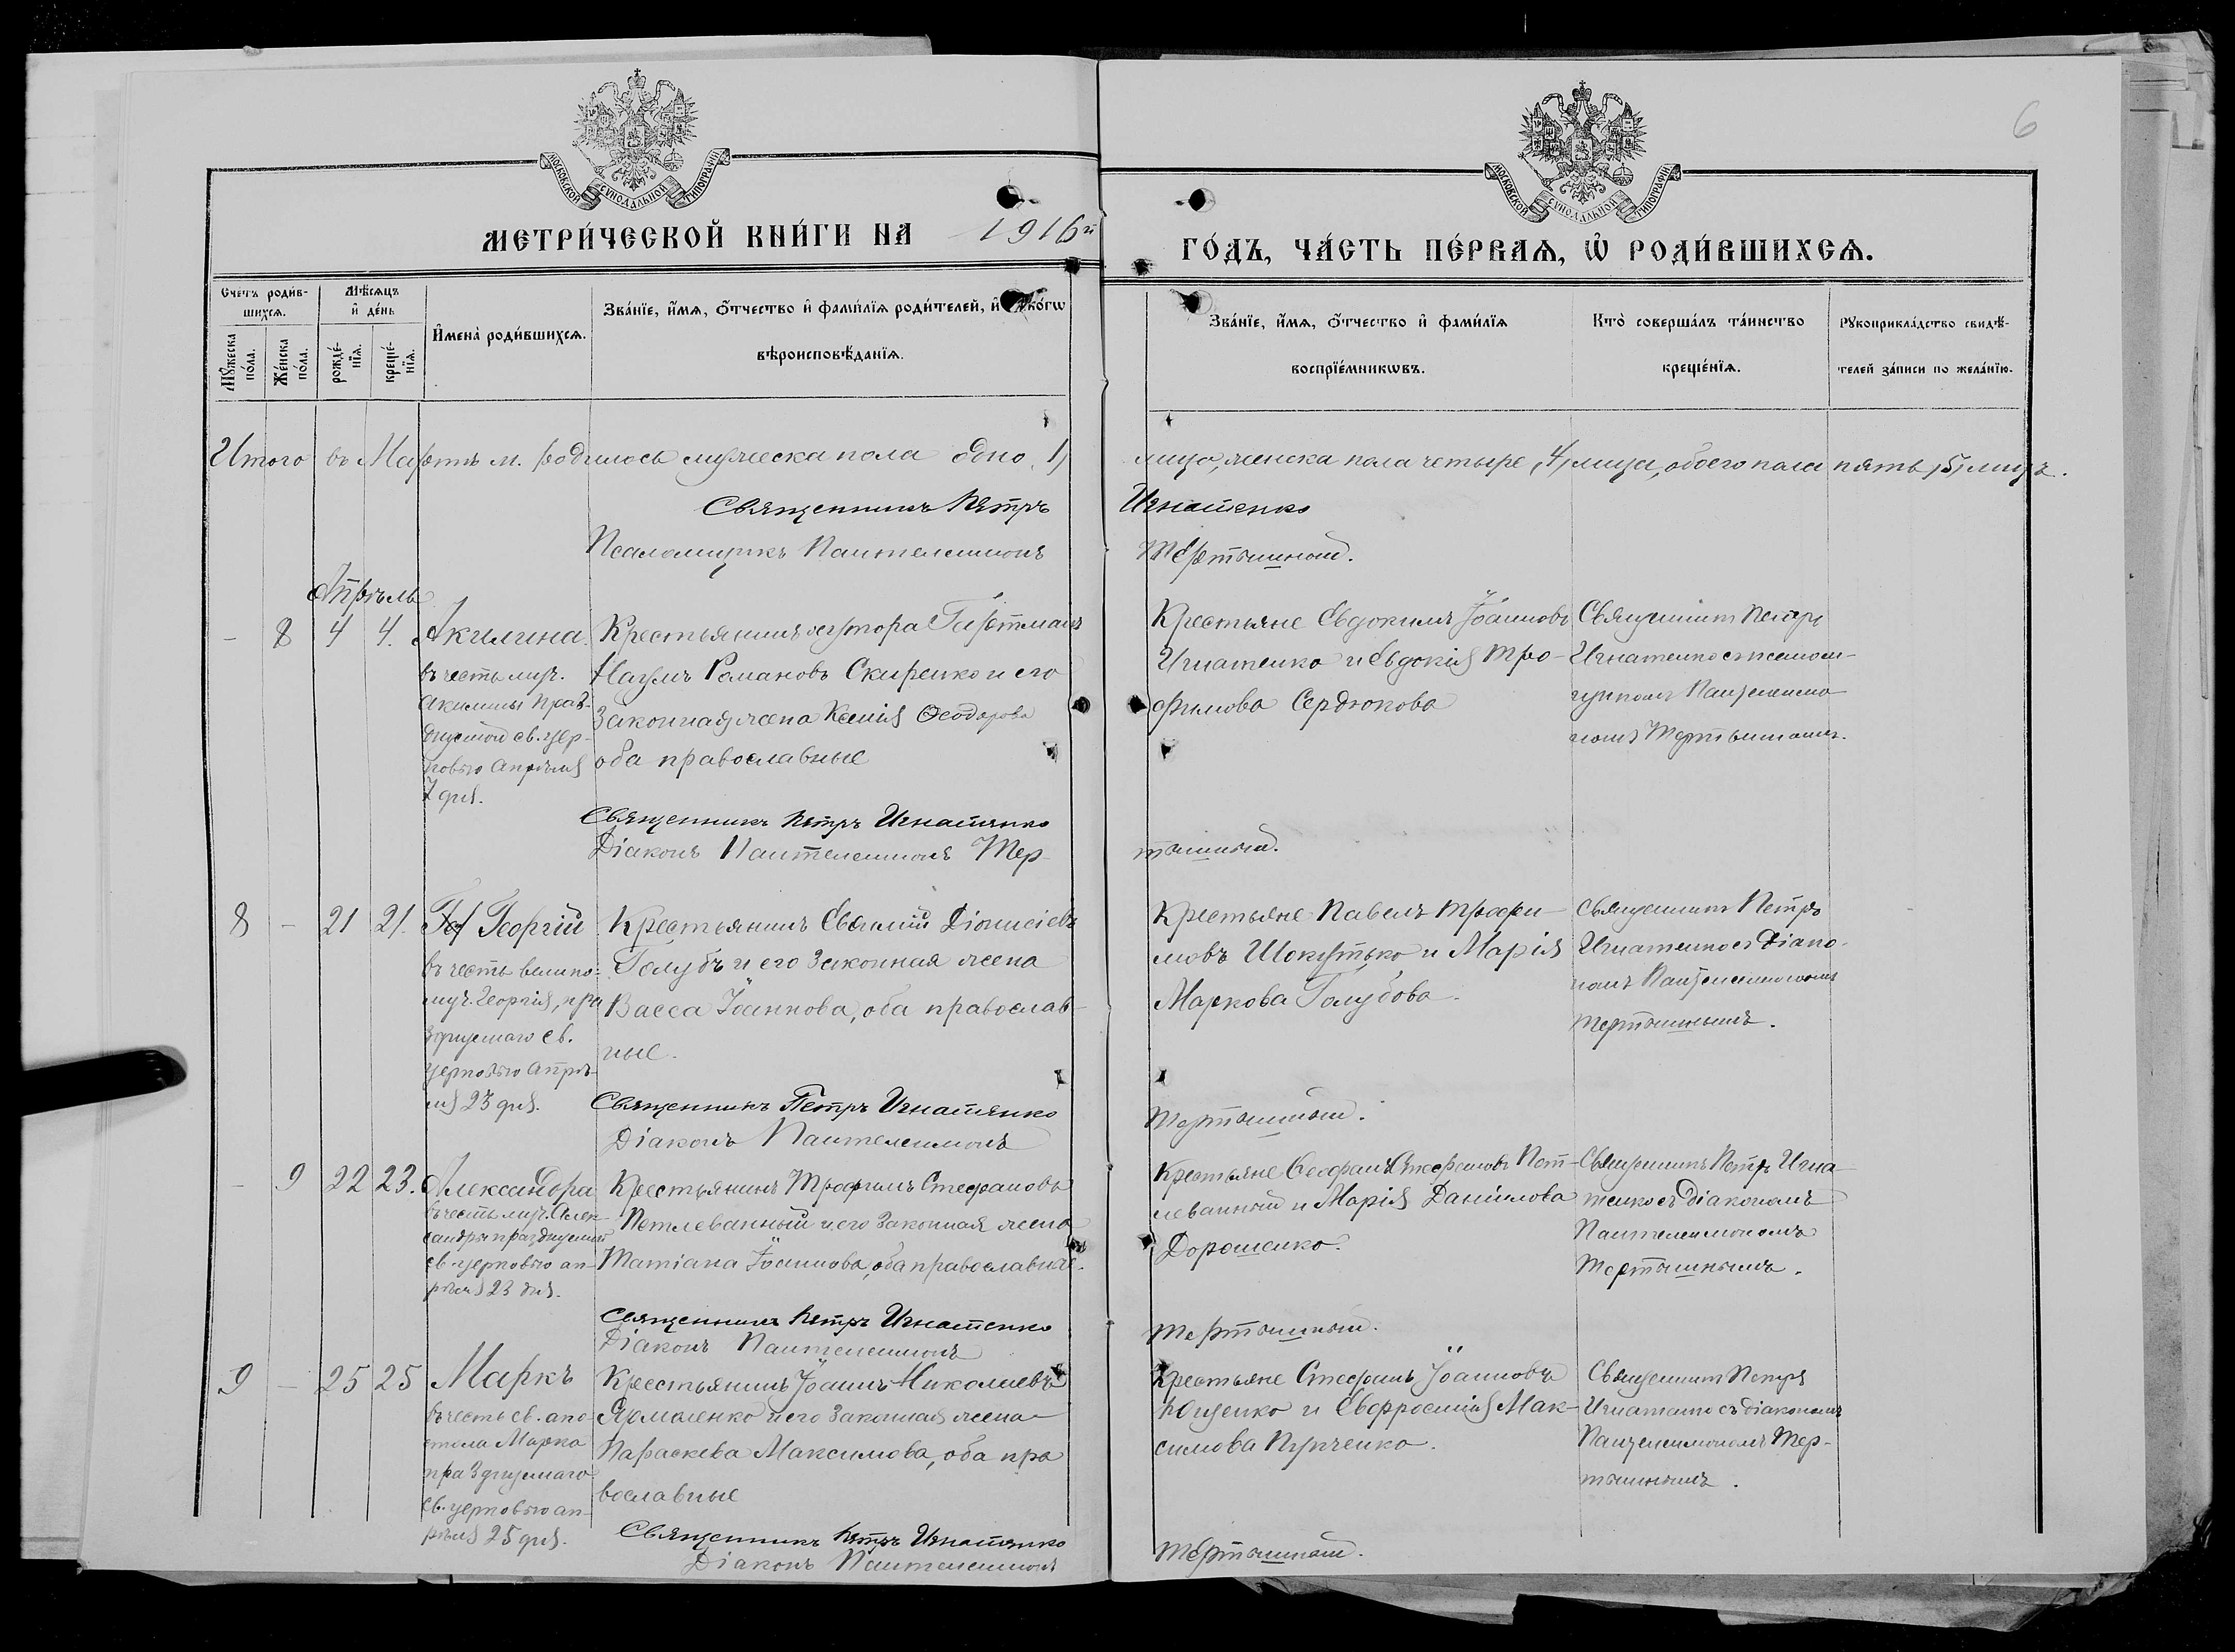 6
МОСКОВСКОЙ СѴНОДАЛЬНОЙ ТИПОГРАФІИ
МОСКОВСКОЙ СѴНОДАЛЬНОЙ ТИПОГРАФІИ
МЕТРИ́ЧЕСКОЙ КНИ́ГИ НА 1916й
ГО́ДЪ, ЧА́СТЬ ПЕ́РВАѦ, Ѽ РОДИ́ВШИХСѦ.
Счетъ роди́в-
шихсѧ.
Мꙋ́жеска по́ла.
Же́нска по́ла.
Мѣ́сѧцъ
и҆ де́нь
рожде́-
нїѧ.
креще́-
нїѧ.
И҆мена̀ роди́вшихсѧ.
Зва́нїе, и҆́мѧ, ѻ҆́тчество и҆ фами́лїѧ роди́телей, и҆ како́гѡ
вѣроисповѣ́данїѧ.
Зва́нїе, и҆́мѧ, ѻ҆́тчество и҆ фами́лїѧ
воспрїе́мникѡвъ.
Кто̀ соверша́лъ та́инство
креще́нїѧ.
Рꙋкоприкла́дство свидѣ́-
телей за́писи по жела́нїю.
Итого въ Мартѣ м. родилось мужеска пола одно, 1,
лицо, женска пола четыре, 4, лица, обоего пола пять, 5, лицъ.
Священникъ Петръ
Игнатенко
Псаломщикъ Пантелеимонъ
Тертышный.
Апрѣль
- 8 4 4. Акилина
въ честь муч.
Акилины празд-
днуемой св. цер-
ковью апрѣля
7 дня.
Крестьянинъ хутора Гартмашъ
Наумъ Романовъ Скиренко и его
законная жена Ксенія Ѳеодорова
оба православные
Крестьяне Евдокимъ Іоанновъ
Игнатенко и Евдокія Тро-
фимова Сердюкова
Священникъ Петръ
Игнатенко съ псалом-
щикомъ Пантелеимо
номъ Тертышнымъ.
Священникъ Петръ Игнатенко
Діаконъ Пантелеимонъ Тер-
тышный.
8 - 21 21. Георгій
въ честь велико-
муч. Георгія, пра
зднуемаго св.
церковью апрѣ-
ля 23 дня.
Крестьянинъ Евѳимій Діонисіевъ
Голубъ и его законная жена
Васса Іоаннова, оба православ-
ные.
Крестьяне Павелъ Трофи-
мовъ Шокутько и Марія
Маркова Голубова.
Священникъ Петръ
Игнатенко съ Діако-
номъ Пантелеимономъ
Тертышнымъ.
Священникъ Петръ Игнатенко
Діаконъ Пантелеимонъ
Тертышный.
- 9 22 23. Александра
въ честь муч. Алек-
сандры празднуемой
св. церковью ап-
рѣля 23 дня.
Крестьянинъ Трофимъ Стефановъ
Потлеванный и его законная жена
Татіана Іоаннова, оба православные.
Крестьяне Ѳеофанъ Стефановъ Пот-
леванный и Марія Даніилова
Дорошенко.
Священникъ Петръ Игна-
тенко съ діакономъ
Пантелеимономъ
Тертышнымъ.
Священникъ Петръ Игнатенко
Діаконъ Пантелеимонъ
Тертышный.
9 - 25 25 Маркъ
въ честь св. апо-
стола Марка
празднуемаго
св. церковью ап-
рѣля 25 дня.
Крестьянинъ Іоаннъ Николаевъ
Ярмоленко и его законная жена
Параскева Максимова, оба пра
вославные
Крестьяне Стефанъ Іоанновъ
Ющенко и Евфросинія Мак-
симова Пурченко.
Священникъ Петръ
Игнатенко съ діакономъ
Пантелеимономъ Тер-
тышнымъ.
Священникъ Петръ Игнатенко
Діаконъ Пантелеимонъ
Тертышный.